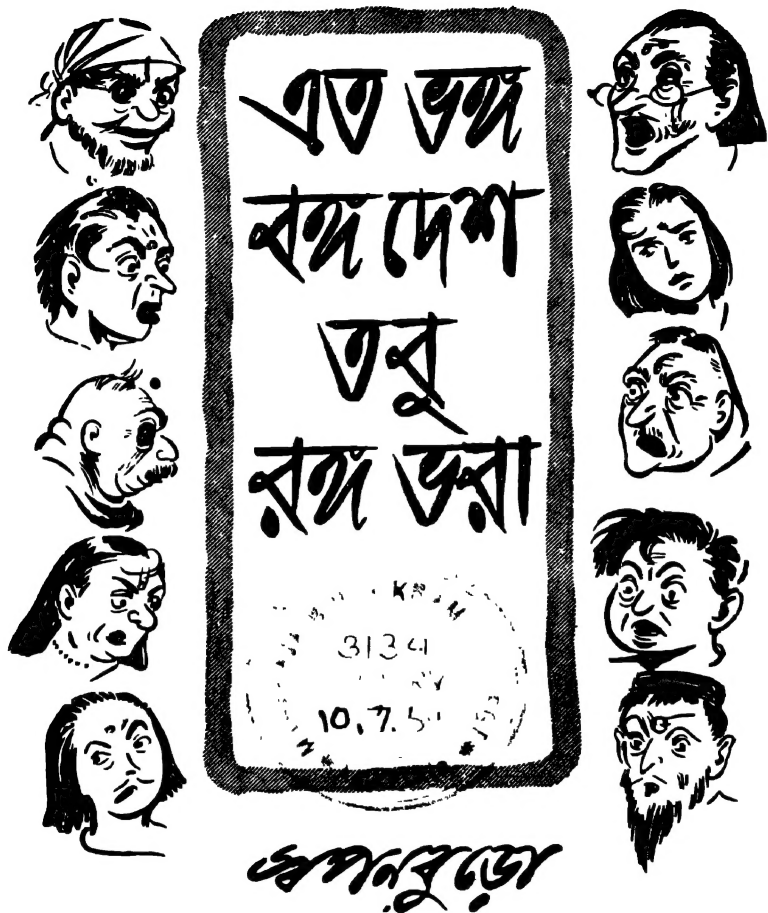 এত ভঙ্গ
বঙ্গ দেশ
তবু
রঙ্গ ভরা
3134
10.7.5
স্বপনবুড়ো